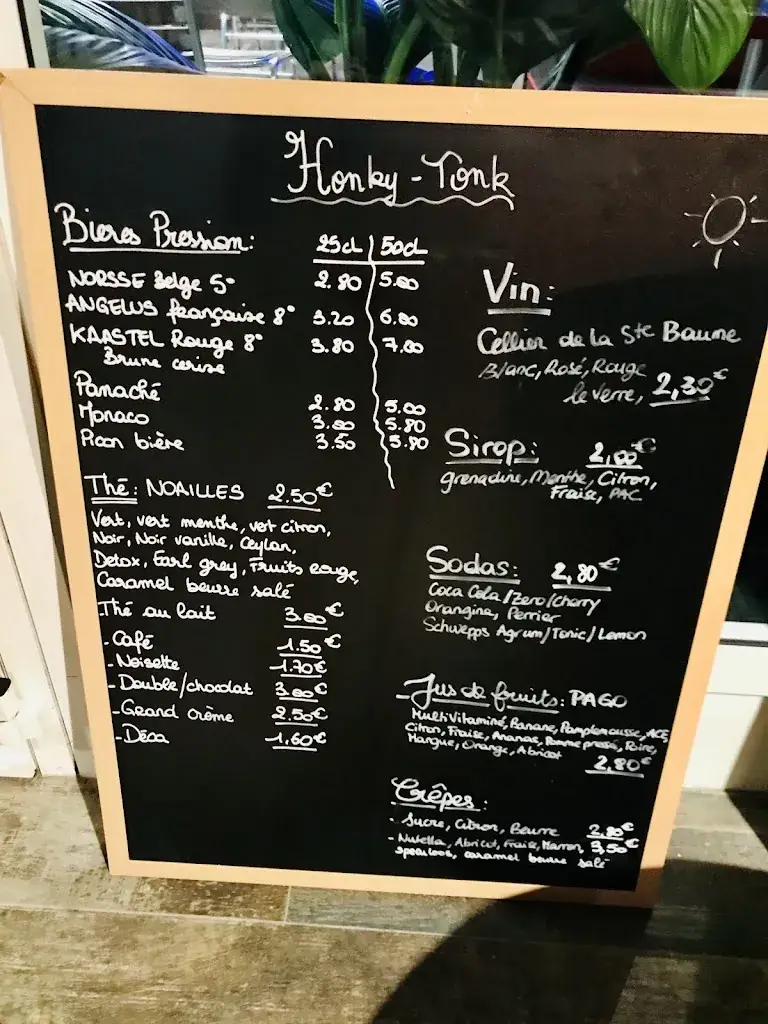 Honky-Tonk
Bieres Pression: 25cl 50cl
NORSSE Belge 5° 2.80 5.00
ANGELUS française 8° 3.20 6.00
KAASTEL Rouge 8° 3.80 7.00
Brune cerise
Panaché 2.80 5.00
Monaco 3.00 5.80
Picon bière 3.50 5.80
Thé: NOAILLES 2.50€
Vert, vert menthe, vert citron,
Noir, Noir vanille, Ceylan,
Detox, Earl grey, Fruits rouge,
Caramel beurre salé
Thé au lait 3.00€
-Café 1.50€
-Noisette 1.70€
-Double/chocolat 3.00€
-Grand crème 2.50€
-Déca 1,60€
Vin:
Cellier de la Ste Baume
Blanc, Rosé, Rouge
le verre, 2,30€
Sirop: 2,00€
grenadine, Menthe, Citron,
Fraise, PAC
Sodas: 2,80€
Coca Cola/Zero/cherry
Orangina, Perrier
Schwepps Agrum/Tonic/Lemon
-Jus de fruits: PAGO
MultiVitaminé, Banane, Pamplemousse, ACE,
Citron, Fraise, Ananas, Pomme pressé, Poire,
Mangue, Orange, Abricot
2,80€
Crêpes:
- Sucre, Citron, Beurre 2,80€
- Nutella, Abricot, Fraise, Marron, 3,50€
speculoos, caramel beurre salé